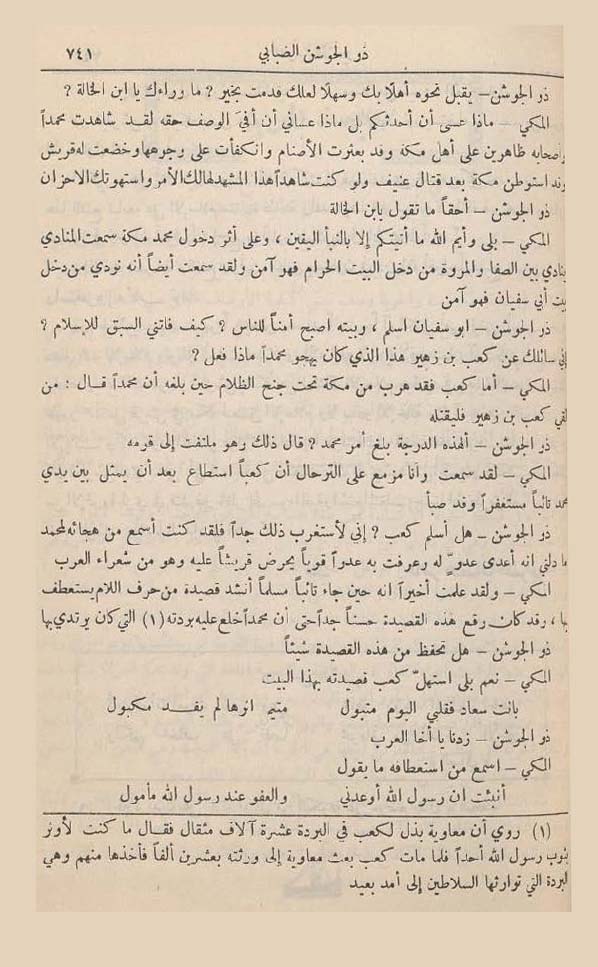 ذو الجوشن الضبابي ٧٤١
ذو الجوشن – يقبل نحوه أهلاً بك وسهلاً لعلك قدمت بخير ? ما وراءك يا ابن الخالة ?
المكي – ماذا عسى أن أحدثكم بل ماذا عساني أن أفيَ الوصف حقه لقد شاهدت محمداً
وأصحابه ظاهرين على أهل مكة وقد بعثرت الأصنام وانكفأت على وجوهها وخضعت له قريش
وقد استوطن مكة بعد قتال عنيف ولو كنت شاهداً هذا المشهد لهالك الأمر واستهوتك الاحزان
ذو الجوشن – أحقاً ما تقول يا بن الخالة
المكي – بلى وأيم الله ما أنيتكم إلا بالنبأ اليقين ، وعلى أثر دخول محمد مكة سمعت المنادي
ينادي بين الصفا والمروة من دخل البيت الحرام فهو آمن ولقد سمعت أيضاً أنه نودي من دخل
بيت أبي سفيان فهو آمن
ذو الجوشن – ابو سفيان اسلم ، وبيته اصبح أمناً للناس ? كيف فاتني السبق للإسلام ?
إني سائلك عن كعب بن زهير هذا الذي كان يهجو محمداً ماذا فعل ?
المكي – أما كعب فقد هرب من مكة تحت جنح الظلام حين بلغه أن محمداً قال : من
لقي كعب بن زهير فليقتله
ذو الجوشن – ألهذه الدرجة بلغ أمر محمد ? قال ذلك وهو ملتفت إلى قومه
المكي – لقد سمعت وأنا مزمع على الترحال أن كعباً استطاع بعد أن يمثل بين يدي
محمد تائباً مستغفراً وقد صبأ
ذو الجوشن – هل أسلم كعب ? إني لأستغرب ذلك جداً فلقد كنت أسمع من هجائه لمحمد
ما دلني انه أعدى عدوٍّ له وعرفت به عدواً قوياً يحرض قريشاً عليه وهو من شعراء العرب
المكي – ولقد علمت أخيراً انه حين جاء تائباً مسلماً أنشد قصيدة من حرف اللام يستعطف
بها ، وقد كان رقع هذه القصيدة حسناً جداً حتى أن محمداً خلع عليه بردته (١) التي كان يرتدي بها
ذو الجوشن – هل تحفظ من هذه القصيدة شيئاً
المكي – نعم بلى استهلّ كعب قصيدته بهذا البيت
بانت سعاد فقلبي اليوم متبول متيم اثرها لم يفد مكبول
ذو الجوشن – زدنا يا أخا العرب
المكي – اسمع من استعطافه ما يقول
أنبئت ان رسول الله أوعدني والعفو عند رسول الله مأمول
(١) روي أن معاوية بذل لكعب في البردة عشرة آلاف مثقال فقال ما كنت لأوثر
بثوب رسول الله أحداً فلما مات كعب بعث معاوية إلى ورثته بعشرين ألفاً فأخذها منهم وهي
البردة التي توارثها السلاطين إلى أمد بعيد